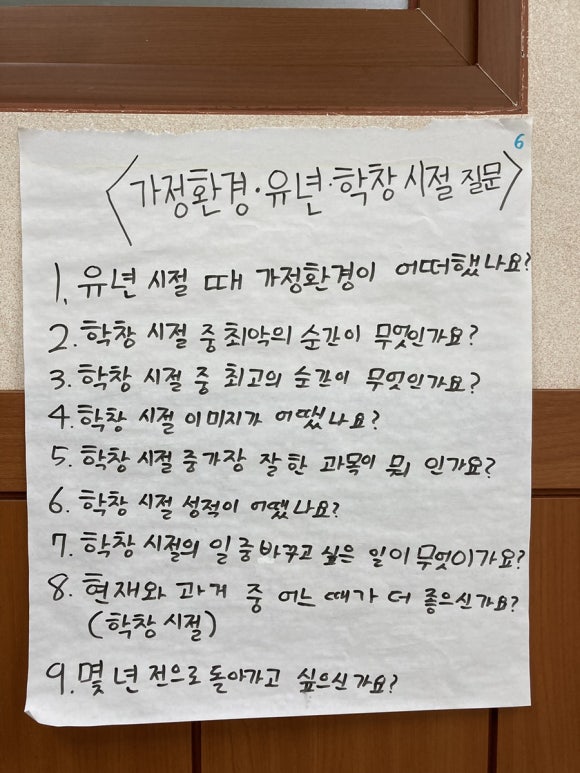 6
<가정환경·유년·학창 시절 질문>
1. 유년 시절 때 가정환경이 어떠했나요?
2. 학창 시절 중 최악의 순간이 무엇인가요?
3. 학창 시절 중 최고의 순간이 무엇인가요?
4. 학창 시절 이미지가 어땠나요?
5. 학창 시절 중 가장 잘 한 과목이 뭐 인가요?
6. 학창 시절 성적이 어땠나요?
7. 학창 시절의 일 중 바꾸고 싶은 일이 무엇이가요?
8. 현재와 과거 중 어느 때가 더 좋으신가요?
(학창 시절)
9. 몇 년 전으로 돌아가고 싶으신가요?